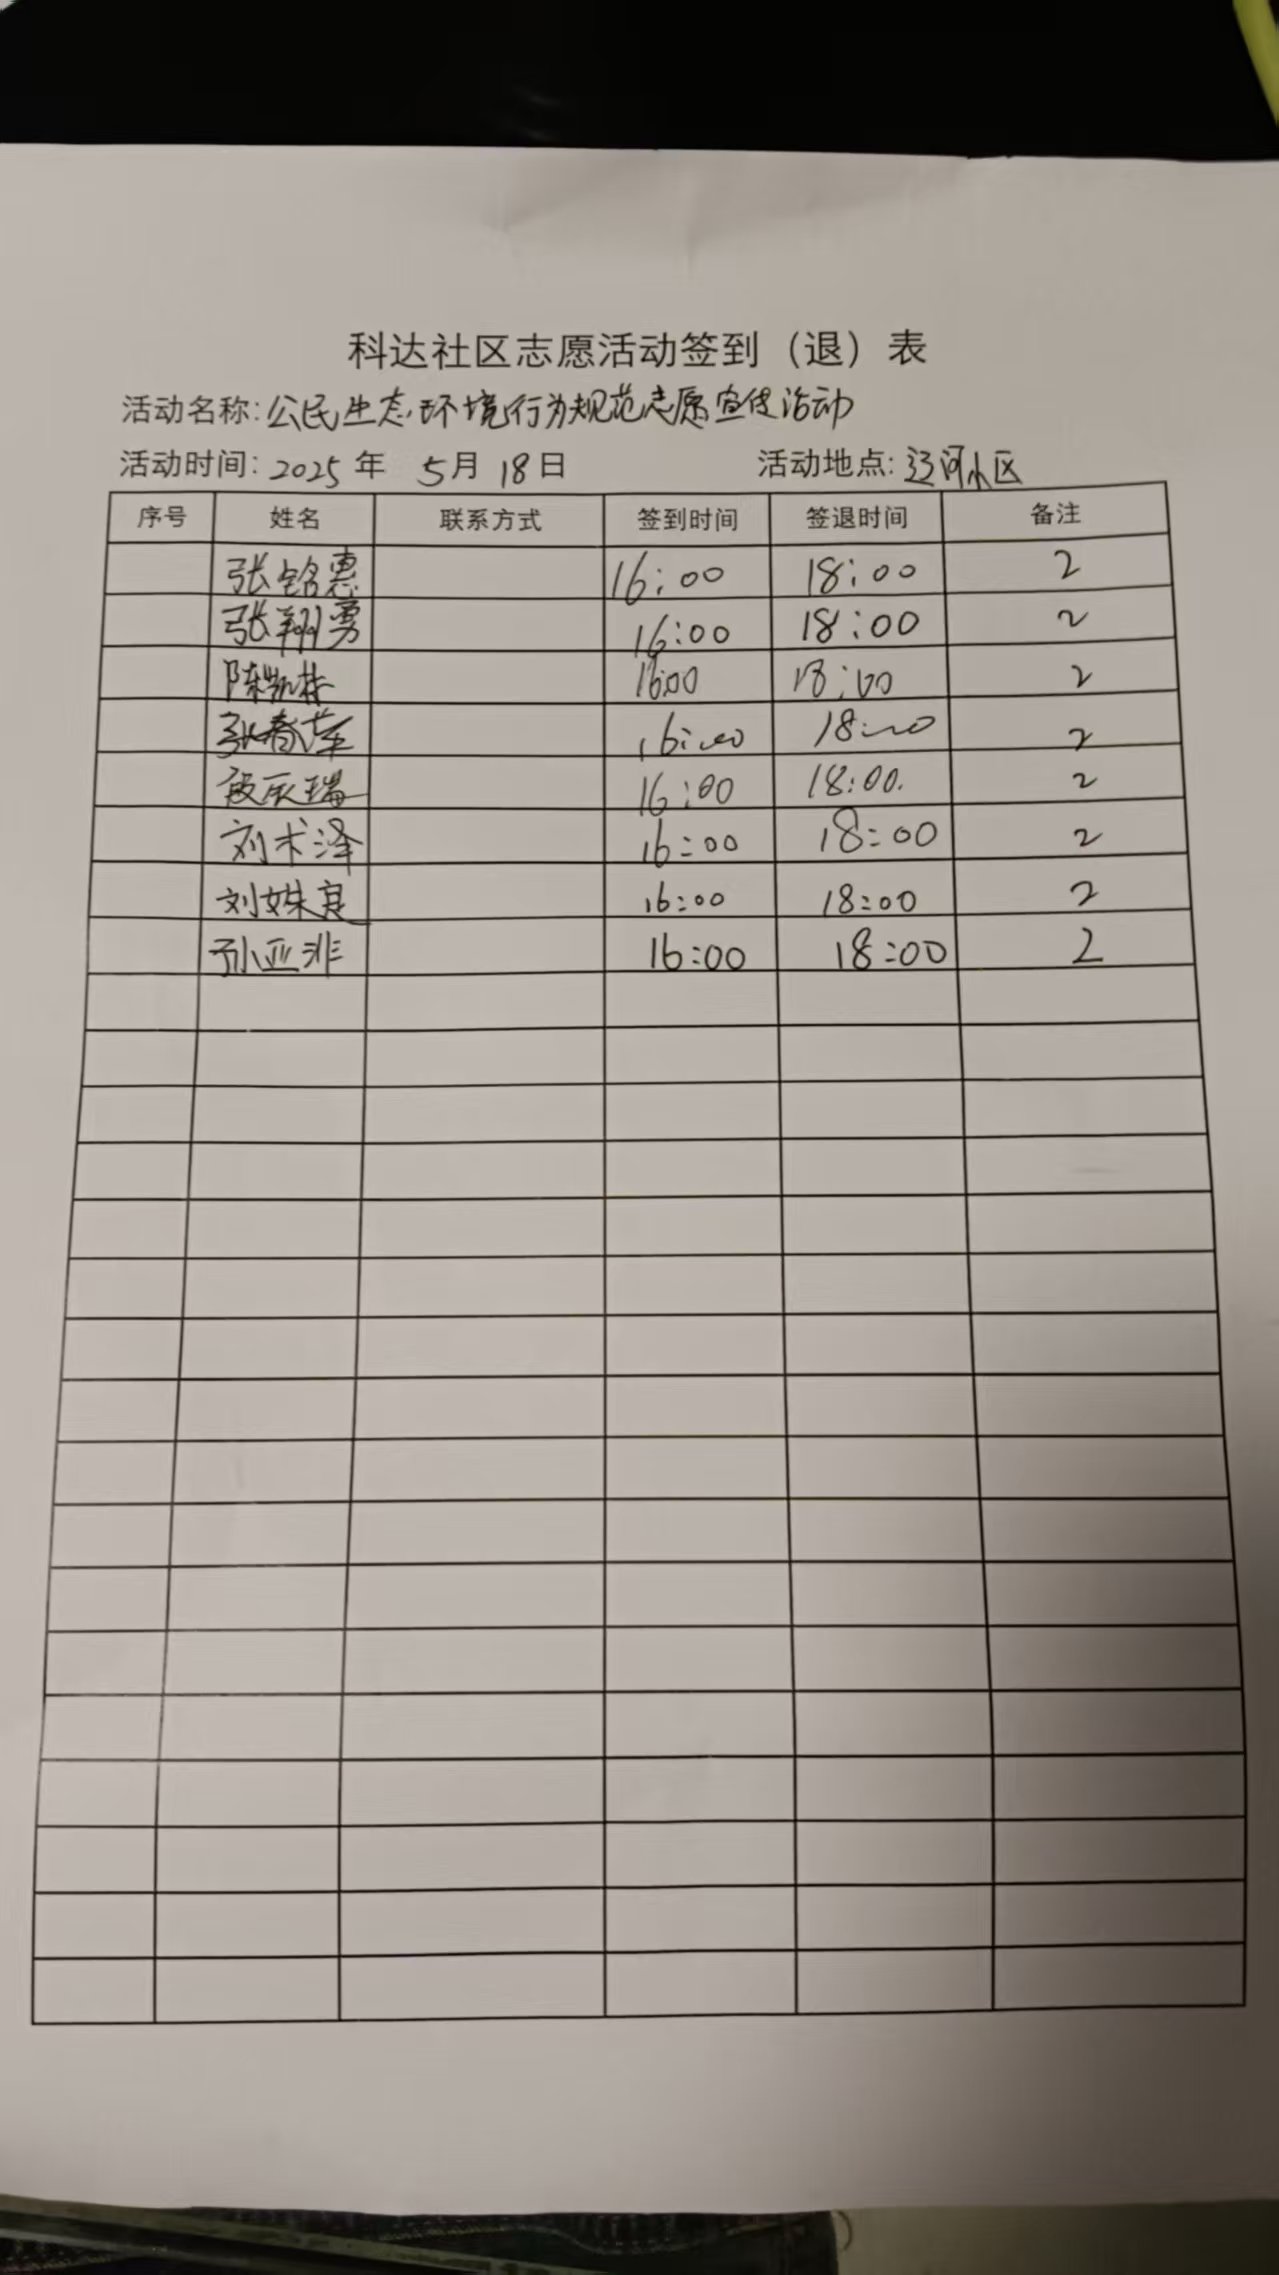 科达社区志愿活动签到（退）表
活动名称:公民生态环境行为规范志愿宣传活动
活动时间: 2025 年 5月 18日 活动地点: 辽河小区
序号 姓名 联系方式 签到时间 签退时间 备注
张铭惠 16:00 18:00 2
张翔勇 16:00 18:00 2
陈凯栋 16:00 18:00 2
张春萍 16:00 18:00 2
段辰瑞 16:00 18:00. 2
刘术泽 16:00 18:00 2
刘姝良 16:00 18:00 2
孙亚非 16:00 18:00 2